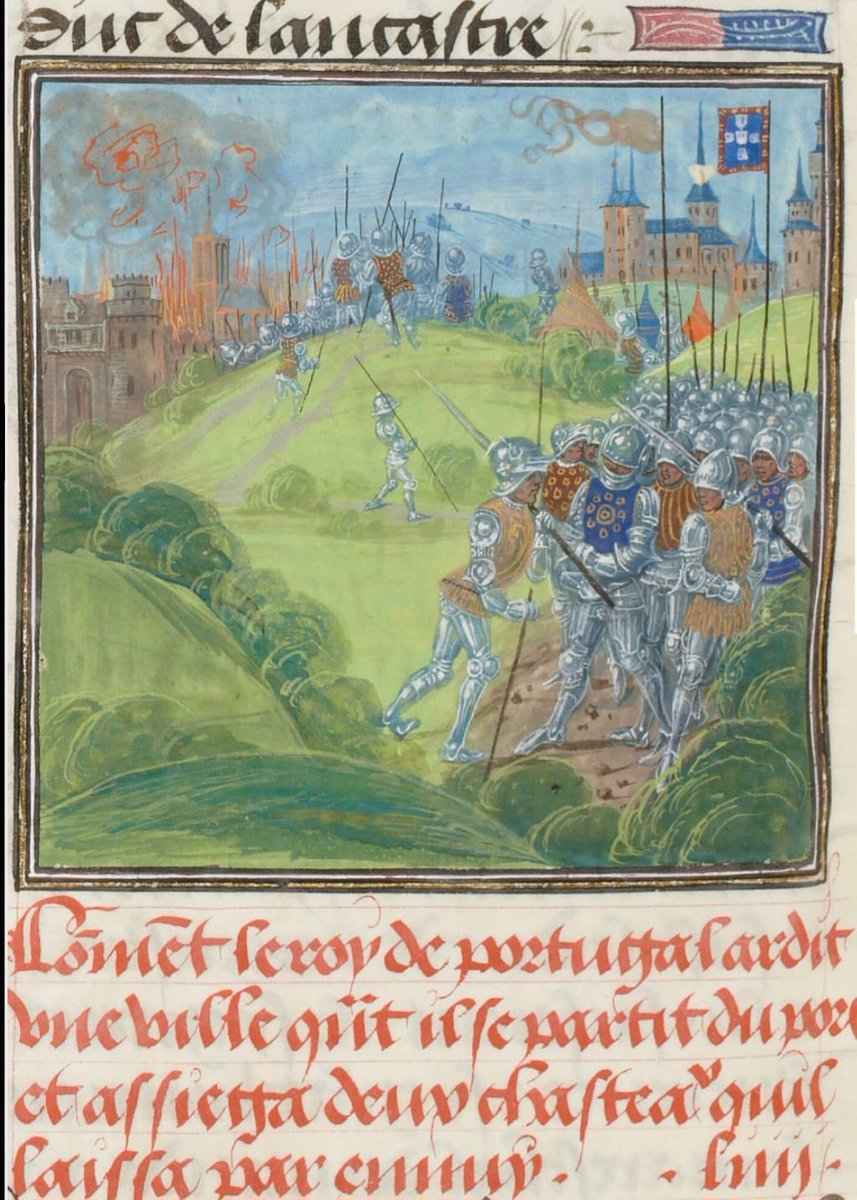 duc de lancastre
Cõmẽt le roy de portugal ardit
vne ville qñt il se partit du port
et assiega deux chasteaˣ quil
laissa par ennuy . . liiii .